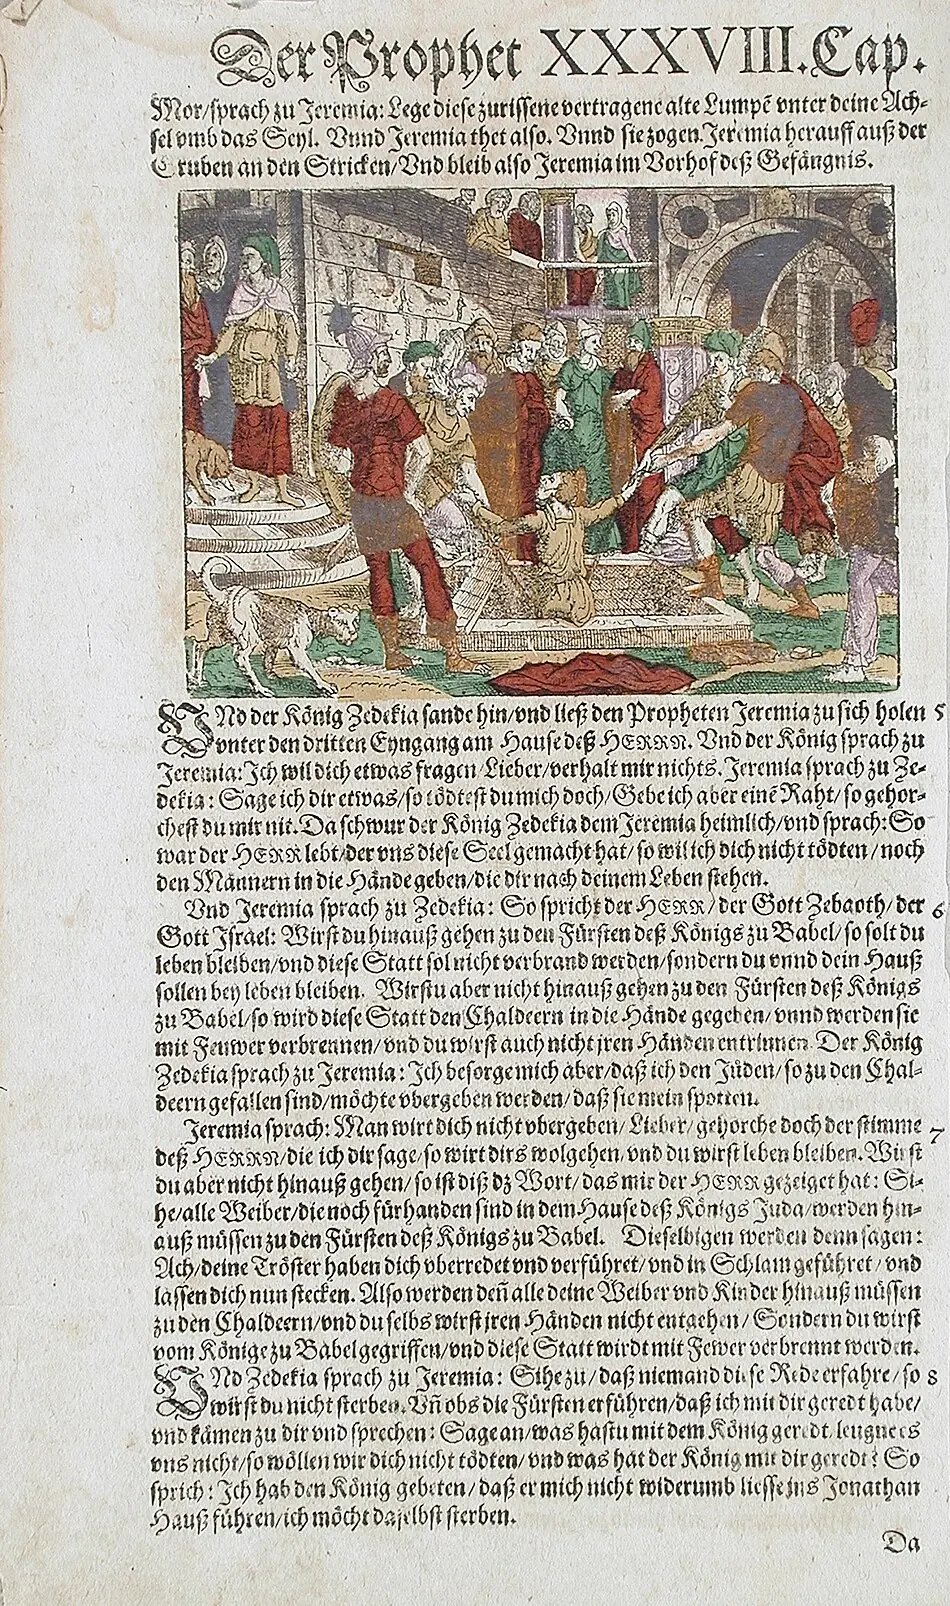 Der Prophet XXXVIII. Cap.
Mor/sprach zu Jeremia: Lege diese zurissene vertragene alte Lumpē vnter deine Ach-
sel vmb das Seyl. Vnnd Jeremia thet also. Vnnd sie zogen Jeremia herauff auß der
Gruben an den Stricken/Vnd bleib also Jeremia im Vorhof deß Gefängnis.
VNd der König Zedekia sande hin/vnd ließ den Propheten Jeremia zu sich holen 5
vnter den dritten Eyngang am Hause deß HERRN. Vnd der König sprach zu
Jeremia: Ich wil dich etwas fragen/Lieber/verhalt mir nichts. Jeremia sprach zu Ze-
dekia: Sage ich dir etwas/so tödtest du mich doch/Gebe ich aber einē Raht/so gehor-
chest du mir nit. Da schwur der König Zedekia dem Jeremia heimlich/vnd sprach: So
war der HERR lebt/der vns diese Seel gemacht hat/so wil ich dich nicht tödten/noch
den Männern in die Hände geben/die dir nach deinem Leben stehen.
Vnd Jeremia sprach zu Zedekia: So spricht der HERR/der Gott Zebaoth/der 6
Gott Israel: Wirst du hinauß gehen zu den Fürsten deß Königs zu Babel/so solt du
leben bleiben/vnd diese Statt sol nicht verbrand werden/sondern du vnnd dein Hauß
sollen bey leben bleiben. Wirstu aber nicht hinauß gehen zu den Fürsten deß Königs
zu Babel/so wird diese Statt den Chaldeern in die Hände gegeben/vnnd werden sie
mit Feuwer verbrennen/vnd du wirst auch nicht jren Händen entrinnen. Der König
Zedekia sprach zu Jeremia: Ich besorge mich aber/daß ich den Jüden/so zu den Chal-
deern gefallen sind/möchte vbergeben werden/daß sie mein spotten.
Jeremia sprach: Man wirt dich nicht vbergeben/Lieber/gehorche doch der stimme 7
deß HERRN/die ich dir sage/so wirt dirs wolgehen/vnd du wirst leben bleiben. Wirst
du aber nicht hinauß gehen/so ist diß dz Wort/das mir der HERR gezeiget hat: Si-
he/alle Weiber/die noch fürhanden sind in dem Hause deß Königs Juda/werden hin-
auß müssen zu den Fürsten deß Königs zu Babel. Dieselbigen werden denn sagen:
Ach/deine Tröster haben dich vberredet vnd verführet/vnd in Schlam geführet/vnd
lassen dich nun stecken. Also werden deñ alle deine Weiber vnd Kinder hinauß müssen
zu den Chaldeern/vnd du selbs wirst jren Händen nicht entgehen/Sondern du wirst
vom Könige zu Babel gegriffen/vnd diese Statt wirdt mit Fewer verbrennt werden.
VNd Zedekia sprach zu Jeremia: Sihe zu/daß niemand diese Rede erfahre/so 8
wirst du nicht sterben. Vñ obs die Fürsten erführen/daß ich mit dir geredt habe/
vnd kämen zu dir vnd sprechen: Sage an/was hastu mit dem König geredt/leugne es
vns nicht/so wöllen wir dich nicht tödten/vnd was hat der König mit dir geredt? So
sprich: Ich hab den König gebeten/daß er mich nicht widerumb liesse ins Jonathan
Hauß führen/ich möcht daselbst sterben.
Da